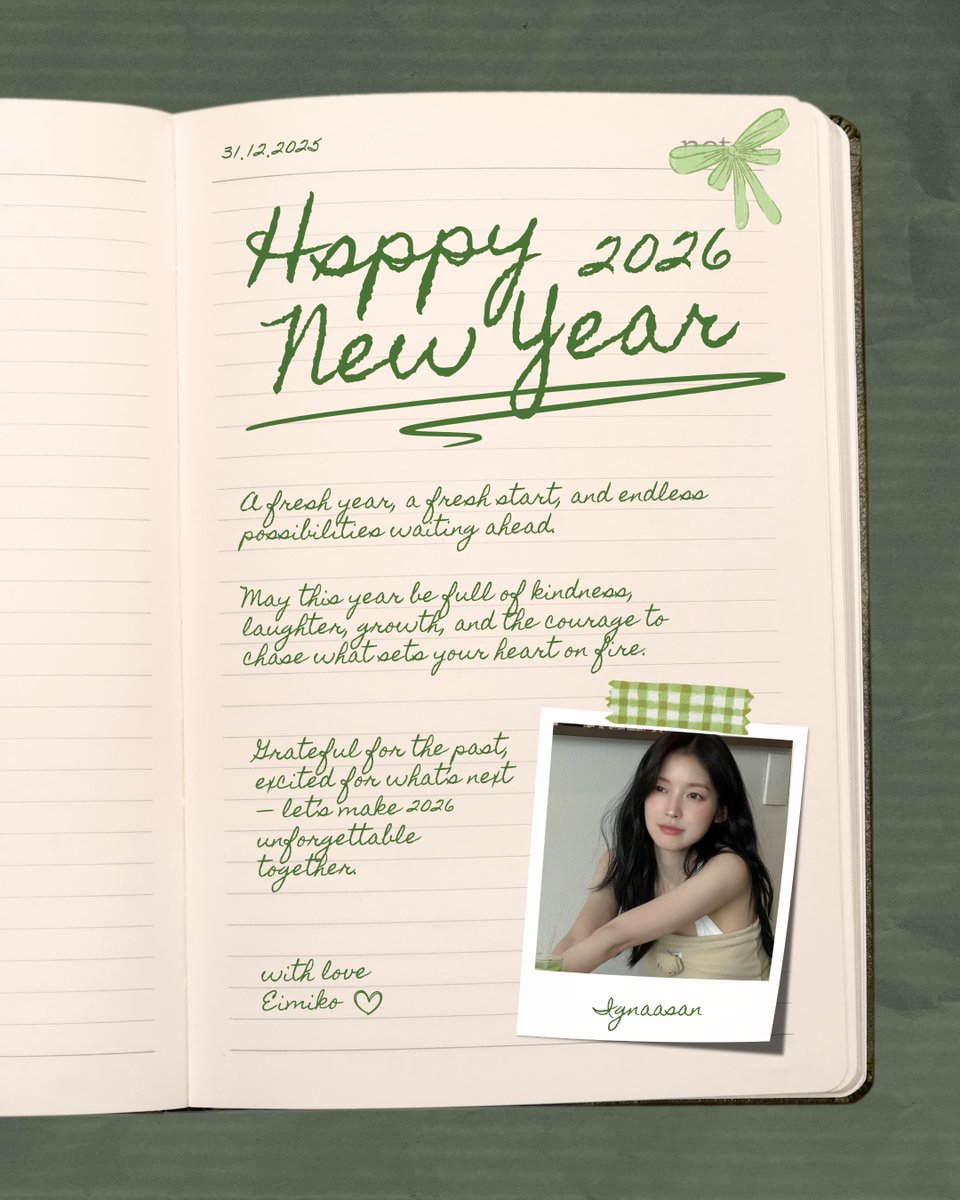 31.12.2025
Happy 2026
New Year
A fresh year, a fresh start, and endless
possibilities waiting ahead.
May this year be full of kindness,
laughter, growth, and the courage to
chase what sets your heart on fire.
Grateful for the past,
excited for what's next
— let's make 2026
unforgettable
together.
with love
Eimiko ♡
Ignaasan